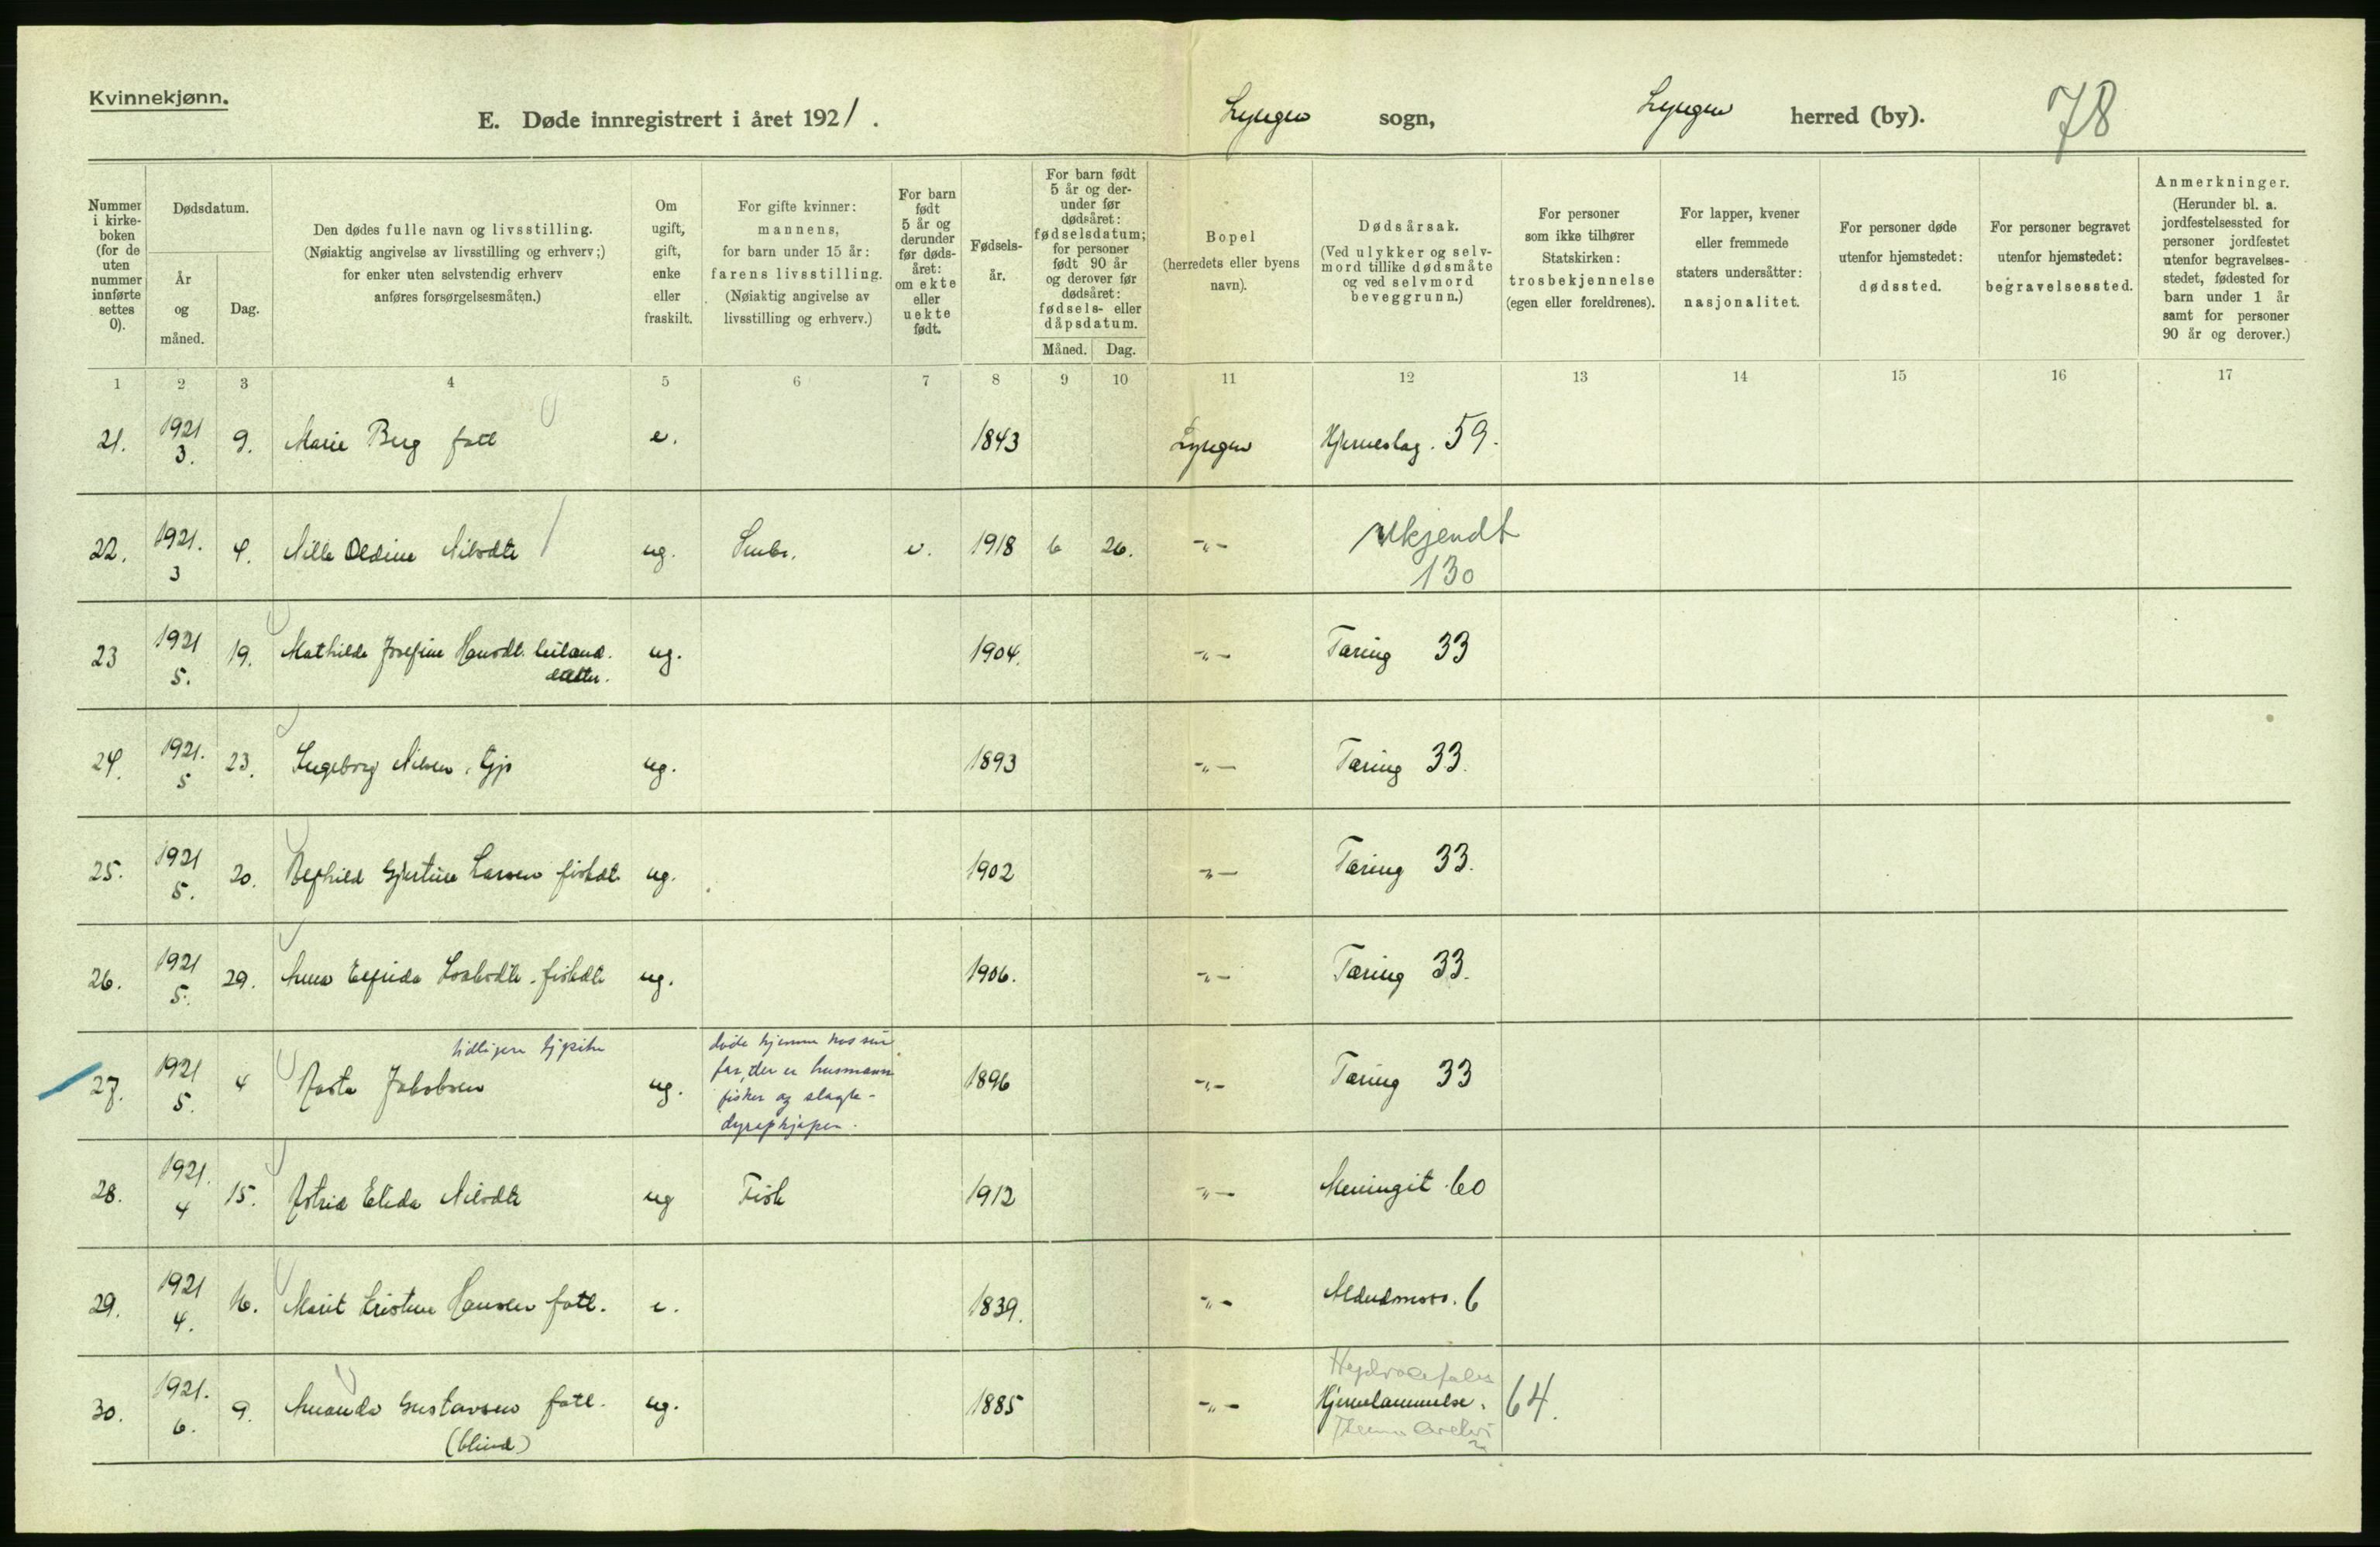 Kvinnekjønn.
E. Døde innregistrert i året 1921. Lyngen sogn, Lyngen herred (by). 78
Nummer i kirke-boken (for de uten nummer innførte settes 0).
Dødsdatum.
År og måned.
Dag.
Den dødes fulle navn og livsstilling.
(Nøiaktig angivelse av livsstilling og erhverv;)
for enker uten selvstendig erhverv
anføres forsørgelsesmåten.)
Om ugift, gift, enke eller fraskilt.
For gifte kvinner:
mannens,
for barn under 15 år:
farens livsstilling.
(Nøiaktig angivelse av
livsstilling og erhverv.)
For barn født 5 år og derunder før døds-året: om ekte eller uekte født.
Fødsels-år.
For barn født 5 år og der-under før dødsåret: fødselsdatum; for personer født 90 år og derover før dødsåret: fødsels- eller dåpsdatum.
Måned. Dag.
Bopel
(herredets eller byens
navn).
Dødsårsak.
(Ved ulykker og selv-
mord tillike dødsmåte
og ved selvmord
beveggrunn.)
For personer
som ikke tilhører
Statskirken:
trosbekjennelse
(egen eller foreldrenes).
For lapper, kvener
eller fremmede
staters undersåtter:
nasjonalitet.
For personer døde
utenfor hjemstedet:
dødssted.
For personer begravet
utenfor hjemstedet:
begravelsessted.
Anmerkninger.
(Herunder bl. a.
jordfestelsessted for
personer jordfestet
utenfor begravelses-
stedet, fødested for
barn under 1 år
samt for personer
90 år og derover.)
1 2 3 4 5 6 7 8 9 10 11 12 13 14 15 16 17
21. 1921 3. 9. Marie Berg fatt e. 1843 Lyngen Hjerneslag. 59.
22. 1921. 3 4. Nille Oldine Nilsdtr ug. 1918 6 26. -"- Ukjendt
130
23 1921 5. 19. Mathilde Josefine Hansdt. ug. 1904. -"- Tæring 33
24. 1921. 5 23. Ingeborg Nilsen. ug. 1893 -"- Tæring 33.
25. 1921 5. 20. Gjertine Larsen fiskdt ug. 1902 -"- Tæring 33.
26. 1921 5. 29. Anna Elfrida fiskdtr ug. 1906. -"- Tæring 33.
27. 1921 5. 4 tidligere
Jakobsen ug. døde hjemme hos sin
far, der er husmann
fisker og slagte-
1896 -"- Tæring 33
28. 1921. 4 15. Astrid Elida Nilsdtr ug Fisk 1912 -"- Meningit 60
29. 1921 4. 16. Marit Kristine Hansen fatt. e. 1839. -"- 6
30. 1921. 6. 9. Amanda Gustavsen fatt. ug. 1885 -"- Hjernelammelse. 64.
(blind)